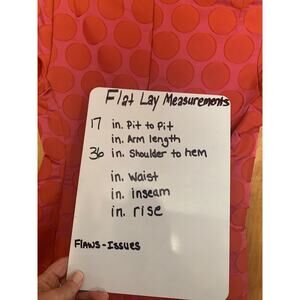 Flat Lay Measurements
17 in. Pit to Pit
in. Arm length
36 in. Shoulder to hem
in. Waist
in. inseam
in. rise
FLAWS-ISSUES